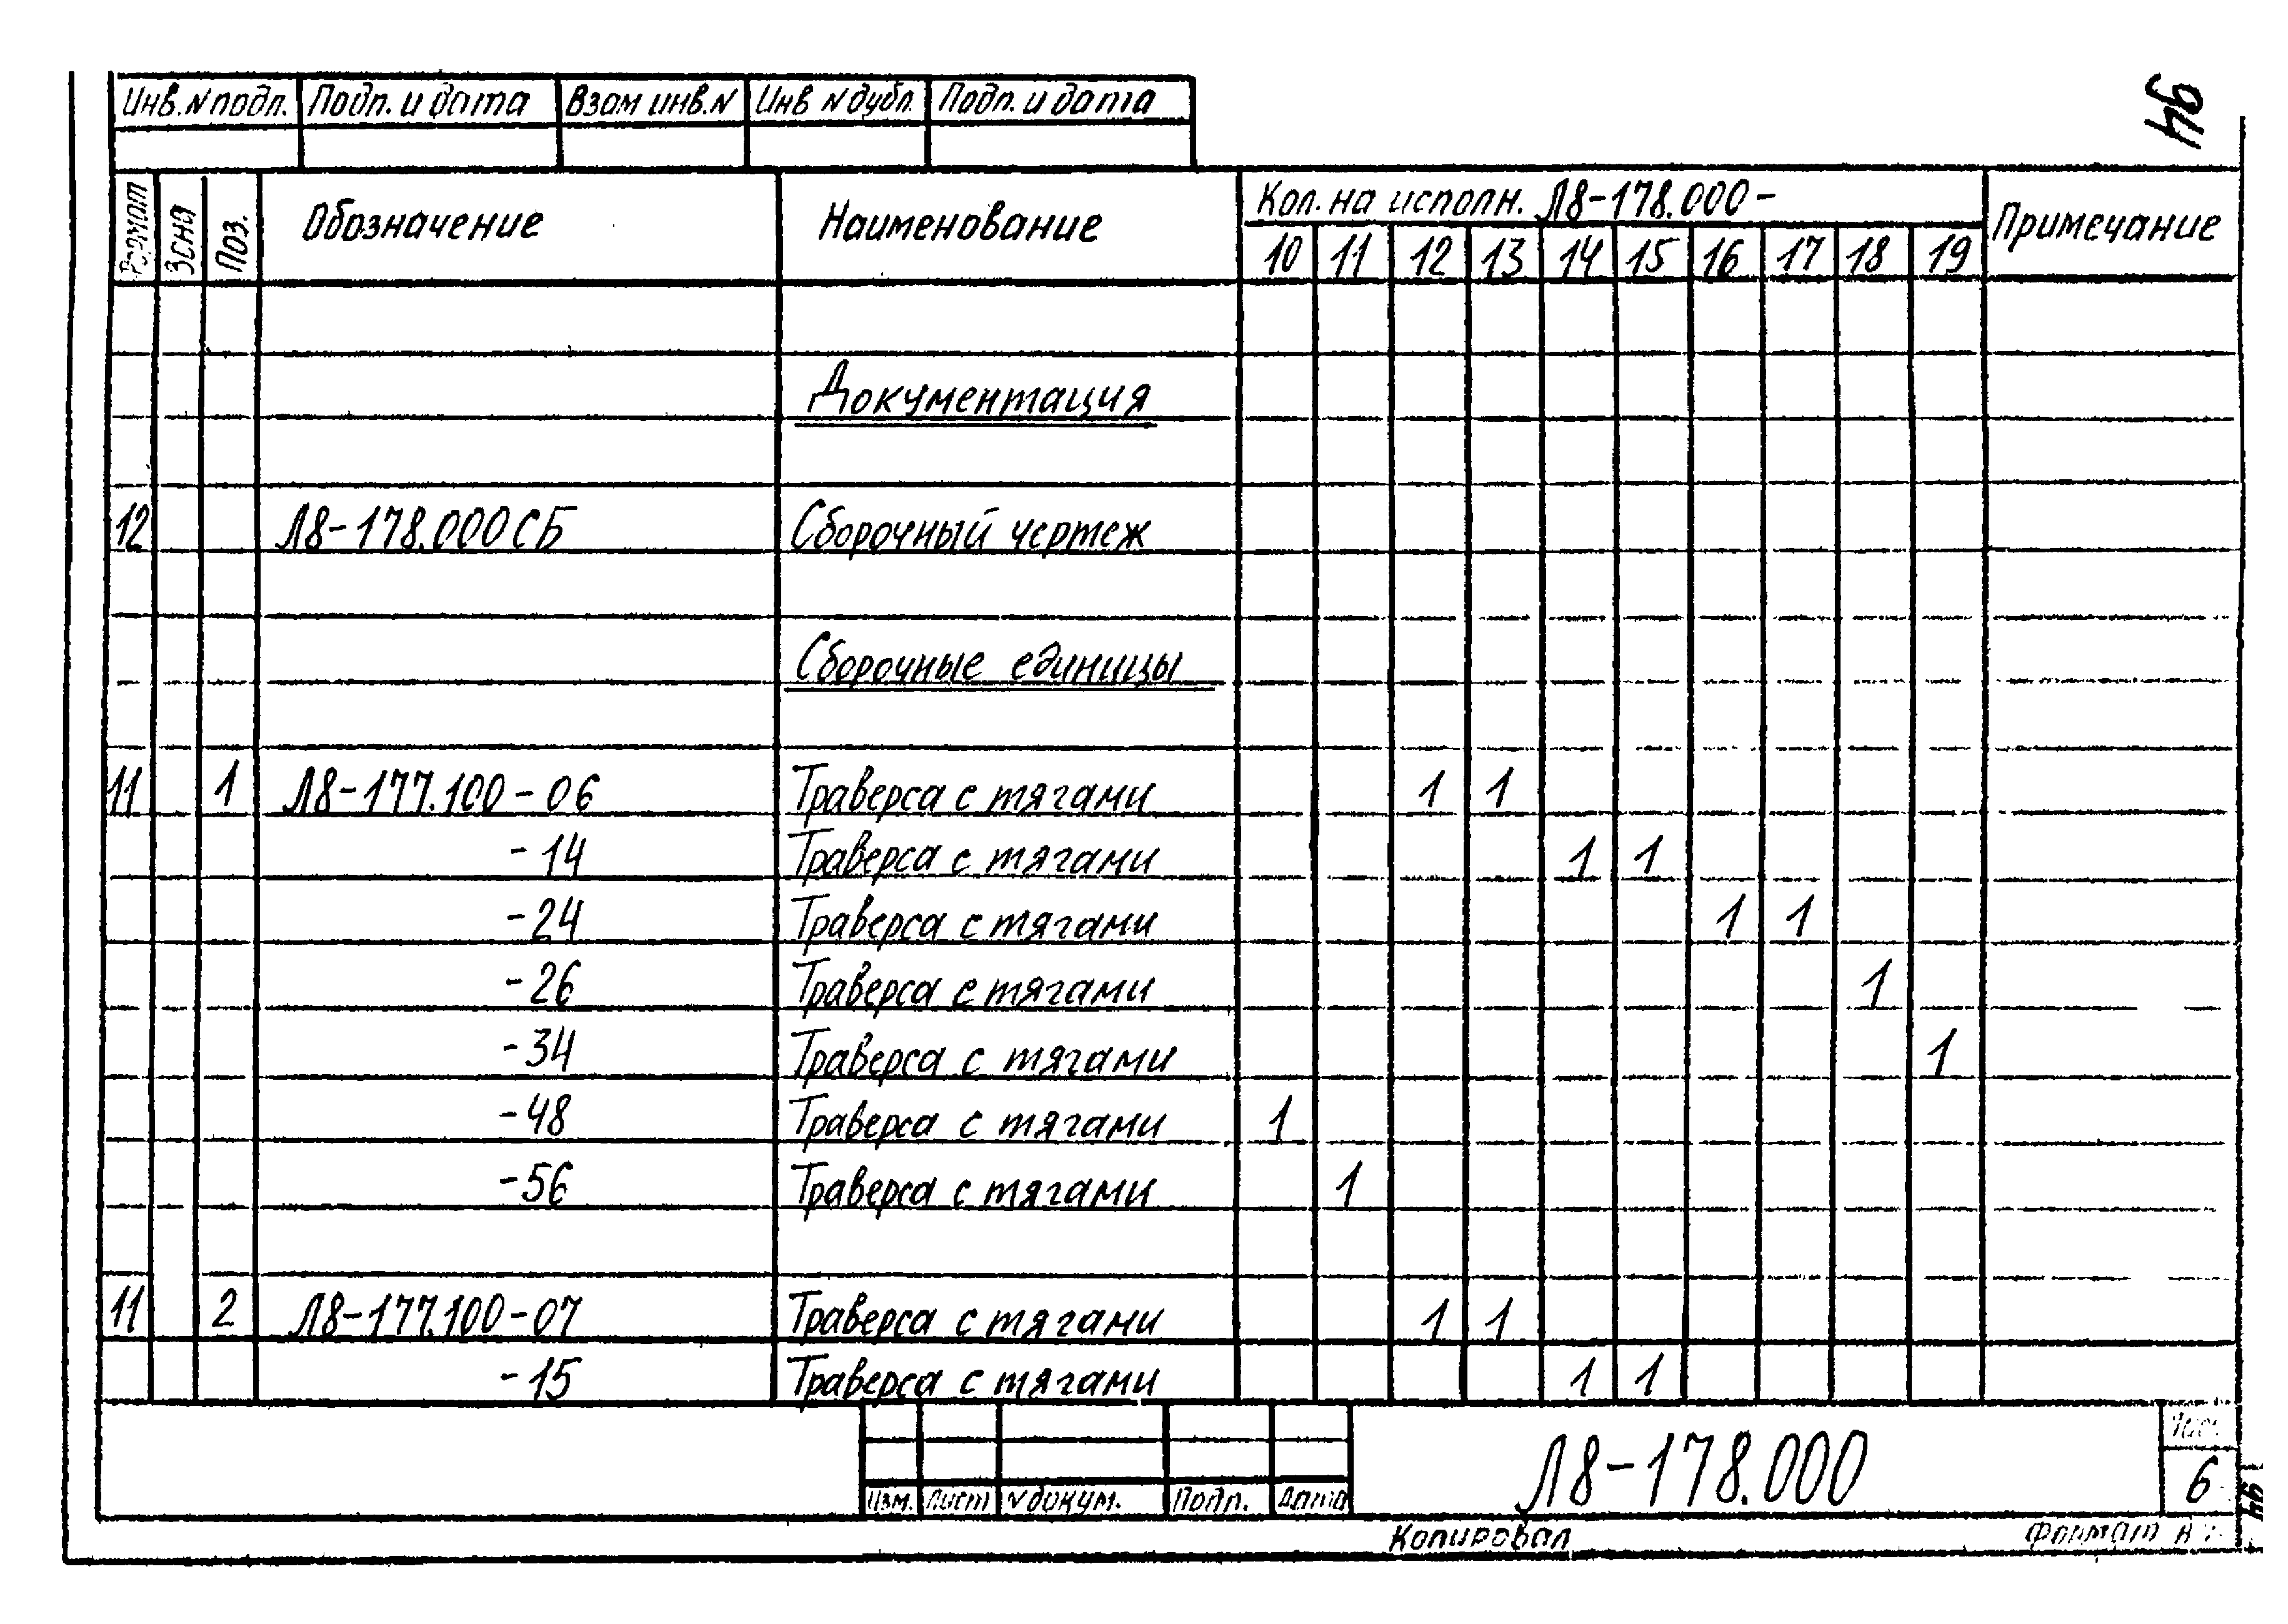 Инв.N подл. Подп. и дата Взам инв.N Инв N дубл. Подп. и дата
94
Формат Зона Поз. Обозначение Наименование Кол. на исполн. Л8-178.000- Примечание
10 11 12 13 14 15 16 17 18 19
Документация
12 Л8-178.000СБ Сборочный чертеж
Сборочные единицы
11 1 Л8-177.100-06 Траверса с тягами 1 1
-14 Траверса с тягами 1 1
-24 Траверса с тягами 1 1
-26 Траверса с тягами 1
-34 Траверса с тягами 1
-48 Траверса с тягами 1
-56 Траверса с тягами 1
11 2 Л8-177.100-07 Траверса с тягами 1 1
-15 Траверса с тягами 1 1
Изм. Лист N докум. Подп. Дата
Л8-178.000
6
94
Копировал Формат